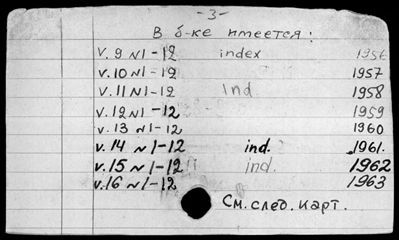 -3-
В б-ке имеется:
v. 9 N1-12 index 1956
v. 10 N1-12 1957
v. 11 N1-12 Ind. 1958
v. 12 N1-12 1959
v. 13 N1-12 1960
v. 14 N1-12 ind. 1961.
v. 15 N1-12 ind. 1962
v. 16 N1-12 1963
См. след. карт.